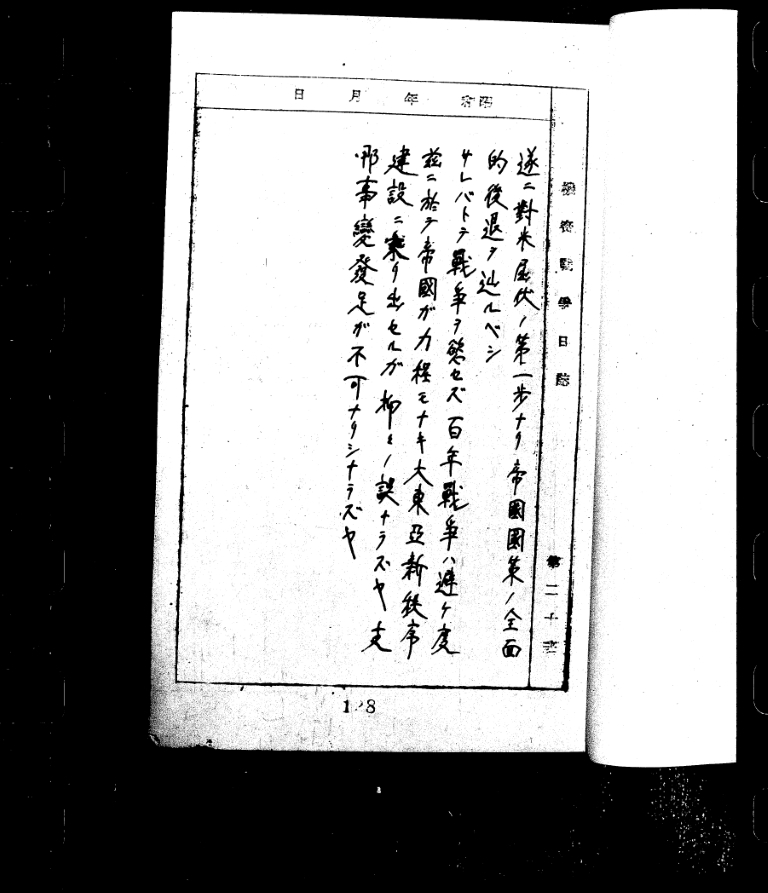 機密戰爭日誌
第二十班
昭和 年 月 日
遂ニ對米屈伏ノ第一歩ナリ帝國國策ノ全面
的後退ヲ辿ルベシ
サレバトテ戰爭ヲ慾セズ百年戰爭ハ避ケ度
茲ニ於テ帝國ガ力程モナキ大東亞新秩序
建設ニ乗リ出セルガ抑々ノ誤ナラズヤ支
那事變發足ガ不可ナリシナラズヤ
128